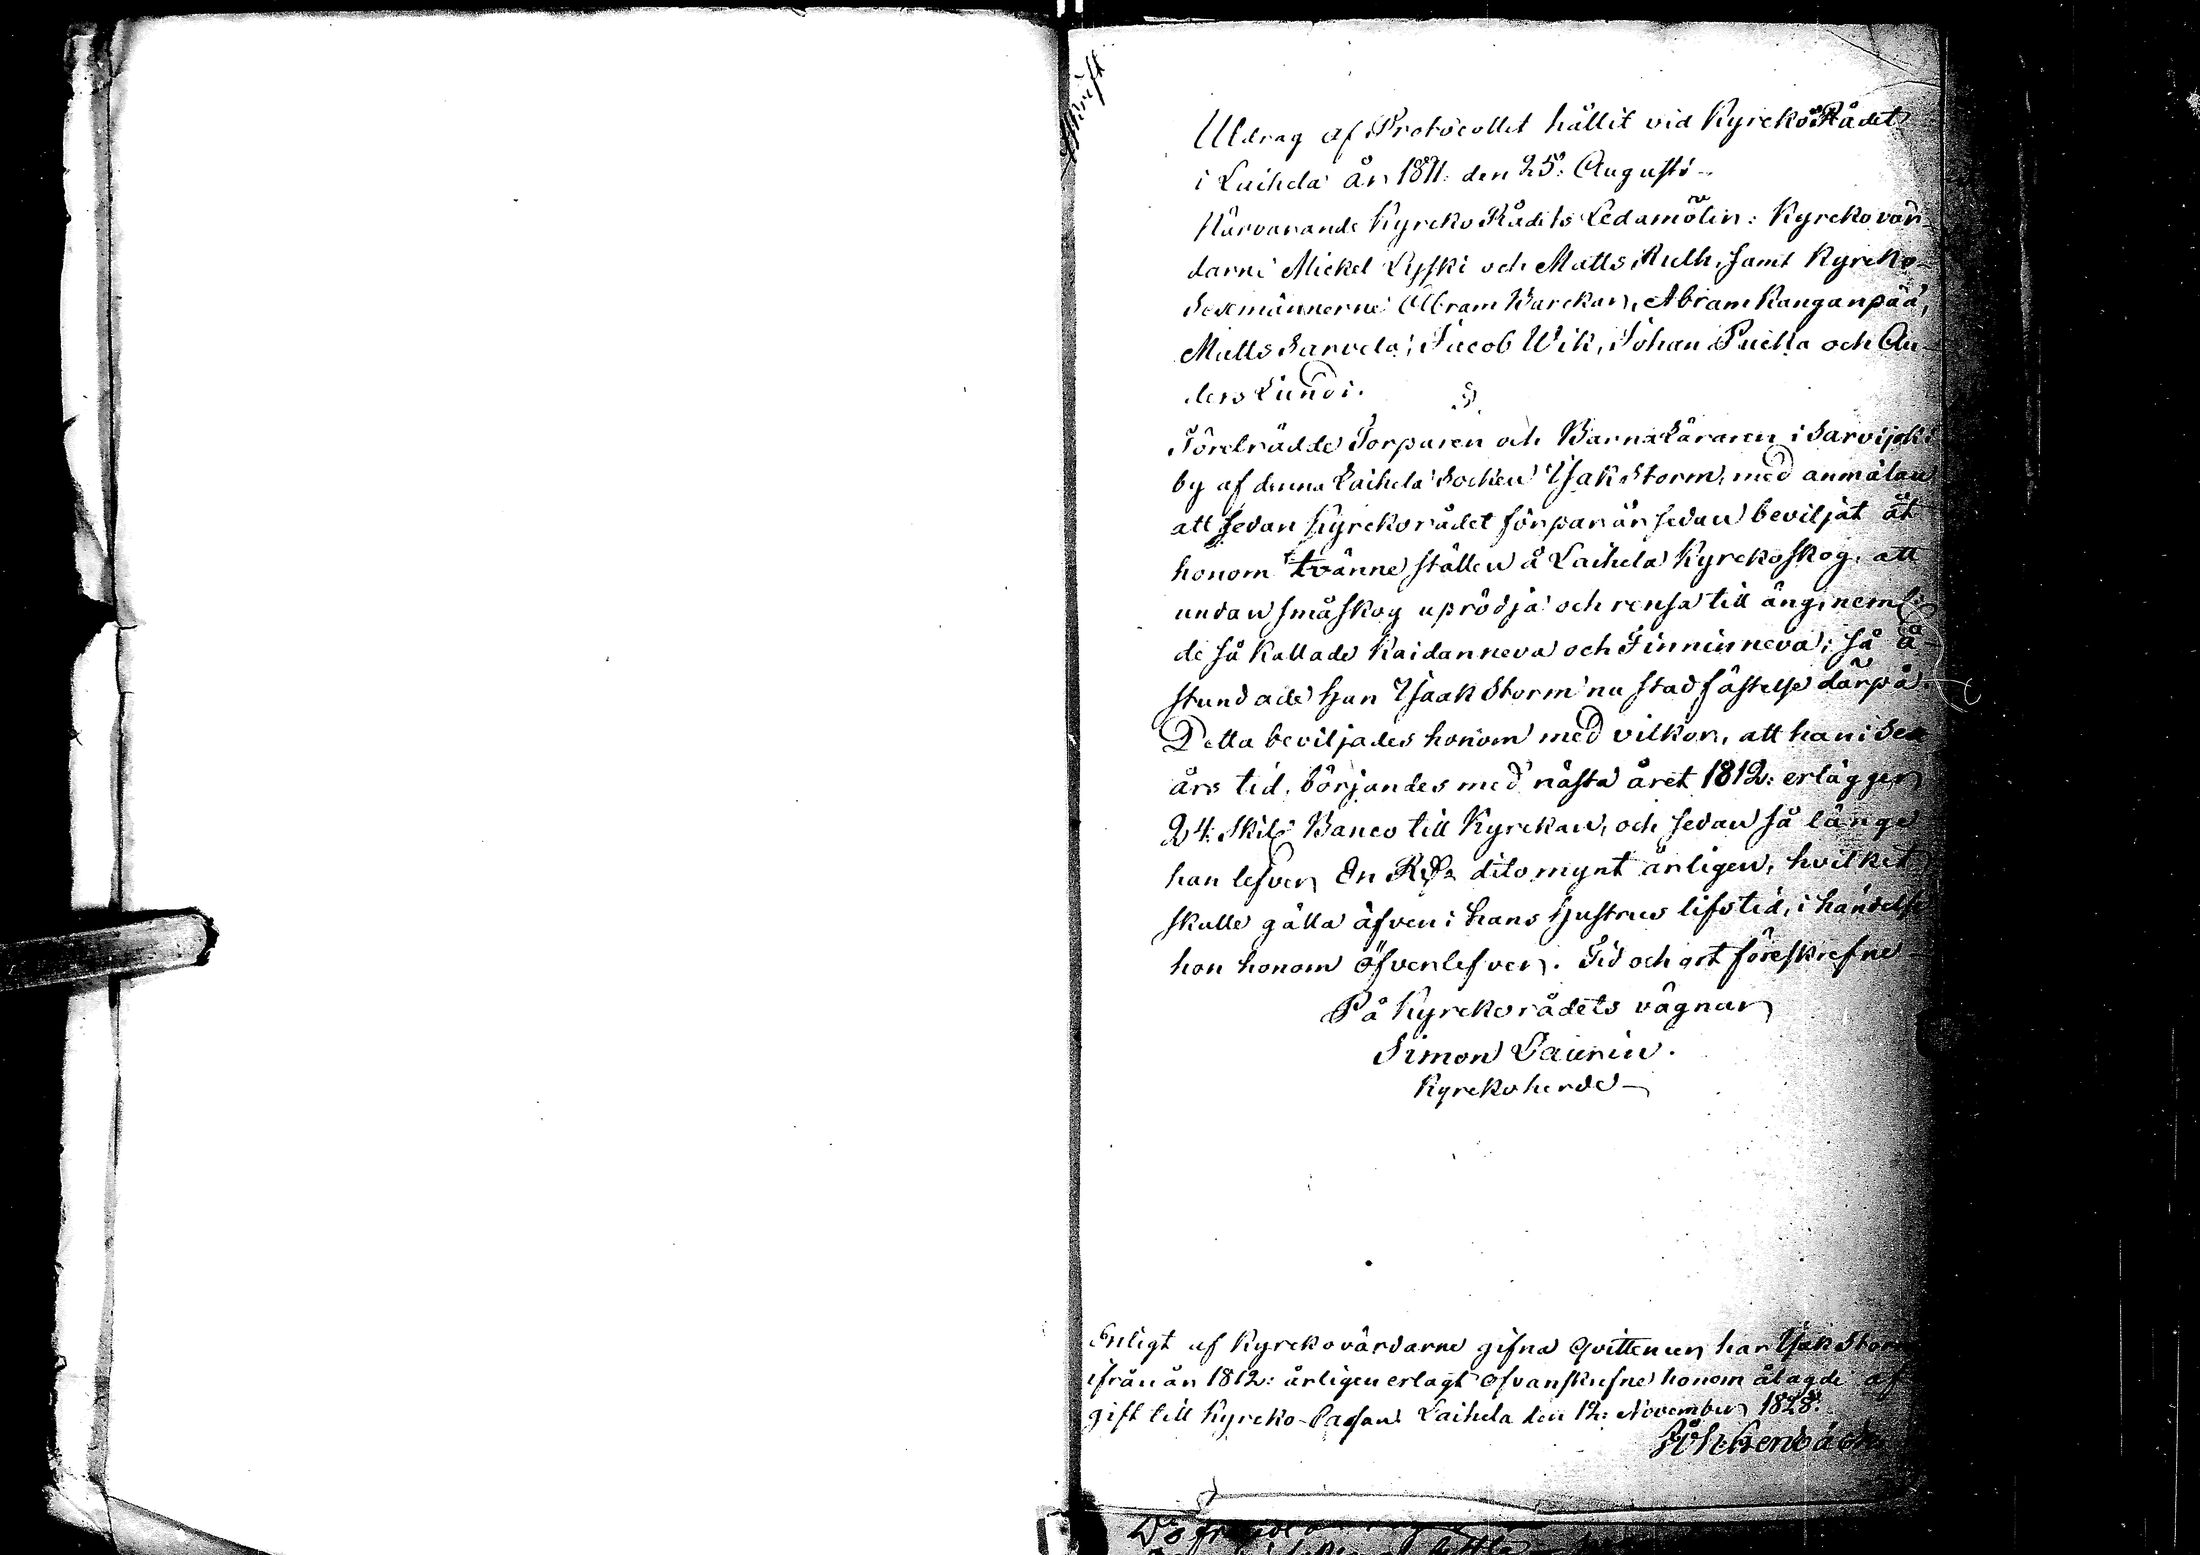 Afskrift
Utdrag af Protocollet hållit vid KyrckoRådet
i Laihela år 1811. den 25: Augusti.
Närvarande KyrckoRådets Ledamöter: Kyrckovär-
darne Mickel Lyski och Matts Ruth, samt Kyrcko-
Sexmännerne Abram Warckar, Abram Kanganpää,
Matts Sarvela, Jacob Wik, Johan Puckla och An-
ders Lundi.
§.
Förelrädde Torparen och BarnaLäraren i Sarvijoki
by af denna Laihela Sochen Isak Storm, med anmälan
att sedan Kyrckorådet för par år sedan beviljat åt
honom tvänne ställen å Laihela Kyrckoskog, att
undan småskog uprödja och rensa till äng, neml:
de så kallade Kaidanneva och Finninneva; så å-
stundade han Isaak Storm nu stadfästelse därpå.
Detta beviljades honom med vilkor, att han i Sex
års tid, börjandes med nästa året 1812: erlägger
24: Skill: Banco till Kyrckan, och sedan så länge
han lefver En Rd dito mynt årligen, hvilket
skulle gälla äfven i hans hustrus lifstid, i händelse
hon honom öfverlefver. Tid och ort föreskrefne
På Kyrckorådets vägnar
Simon Laurin.
Kyrckoherde
Enligt af Kyrckovärdarne gifna qvittenser har Isak Storm
ifrån år 1812: årligen erlagt ofvanskrefne honom ålagde af
gift till Kyrcko-Cassan. Laihela den 12: November 1828.